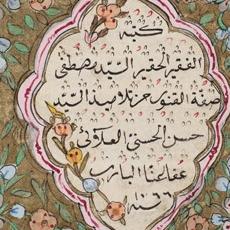 كتبه
الفقير الحقير السيد مصطفى
صفة الفتوى من تلاميذ السيد
حسن الحسنى
عفا عنهما البارى